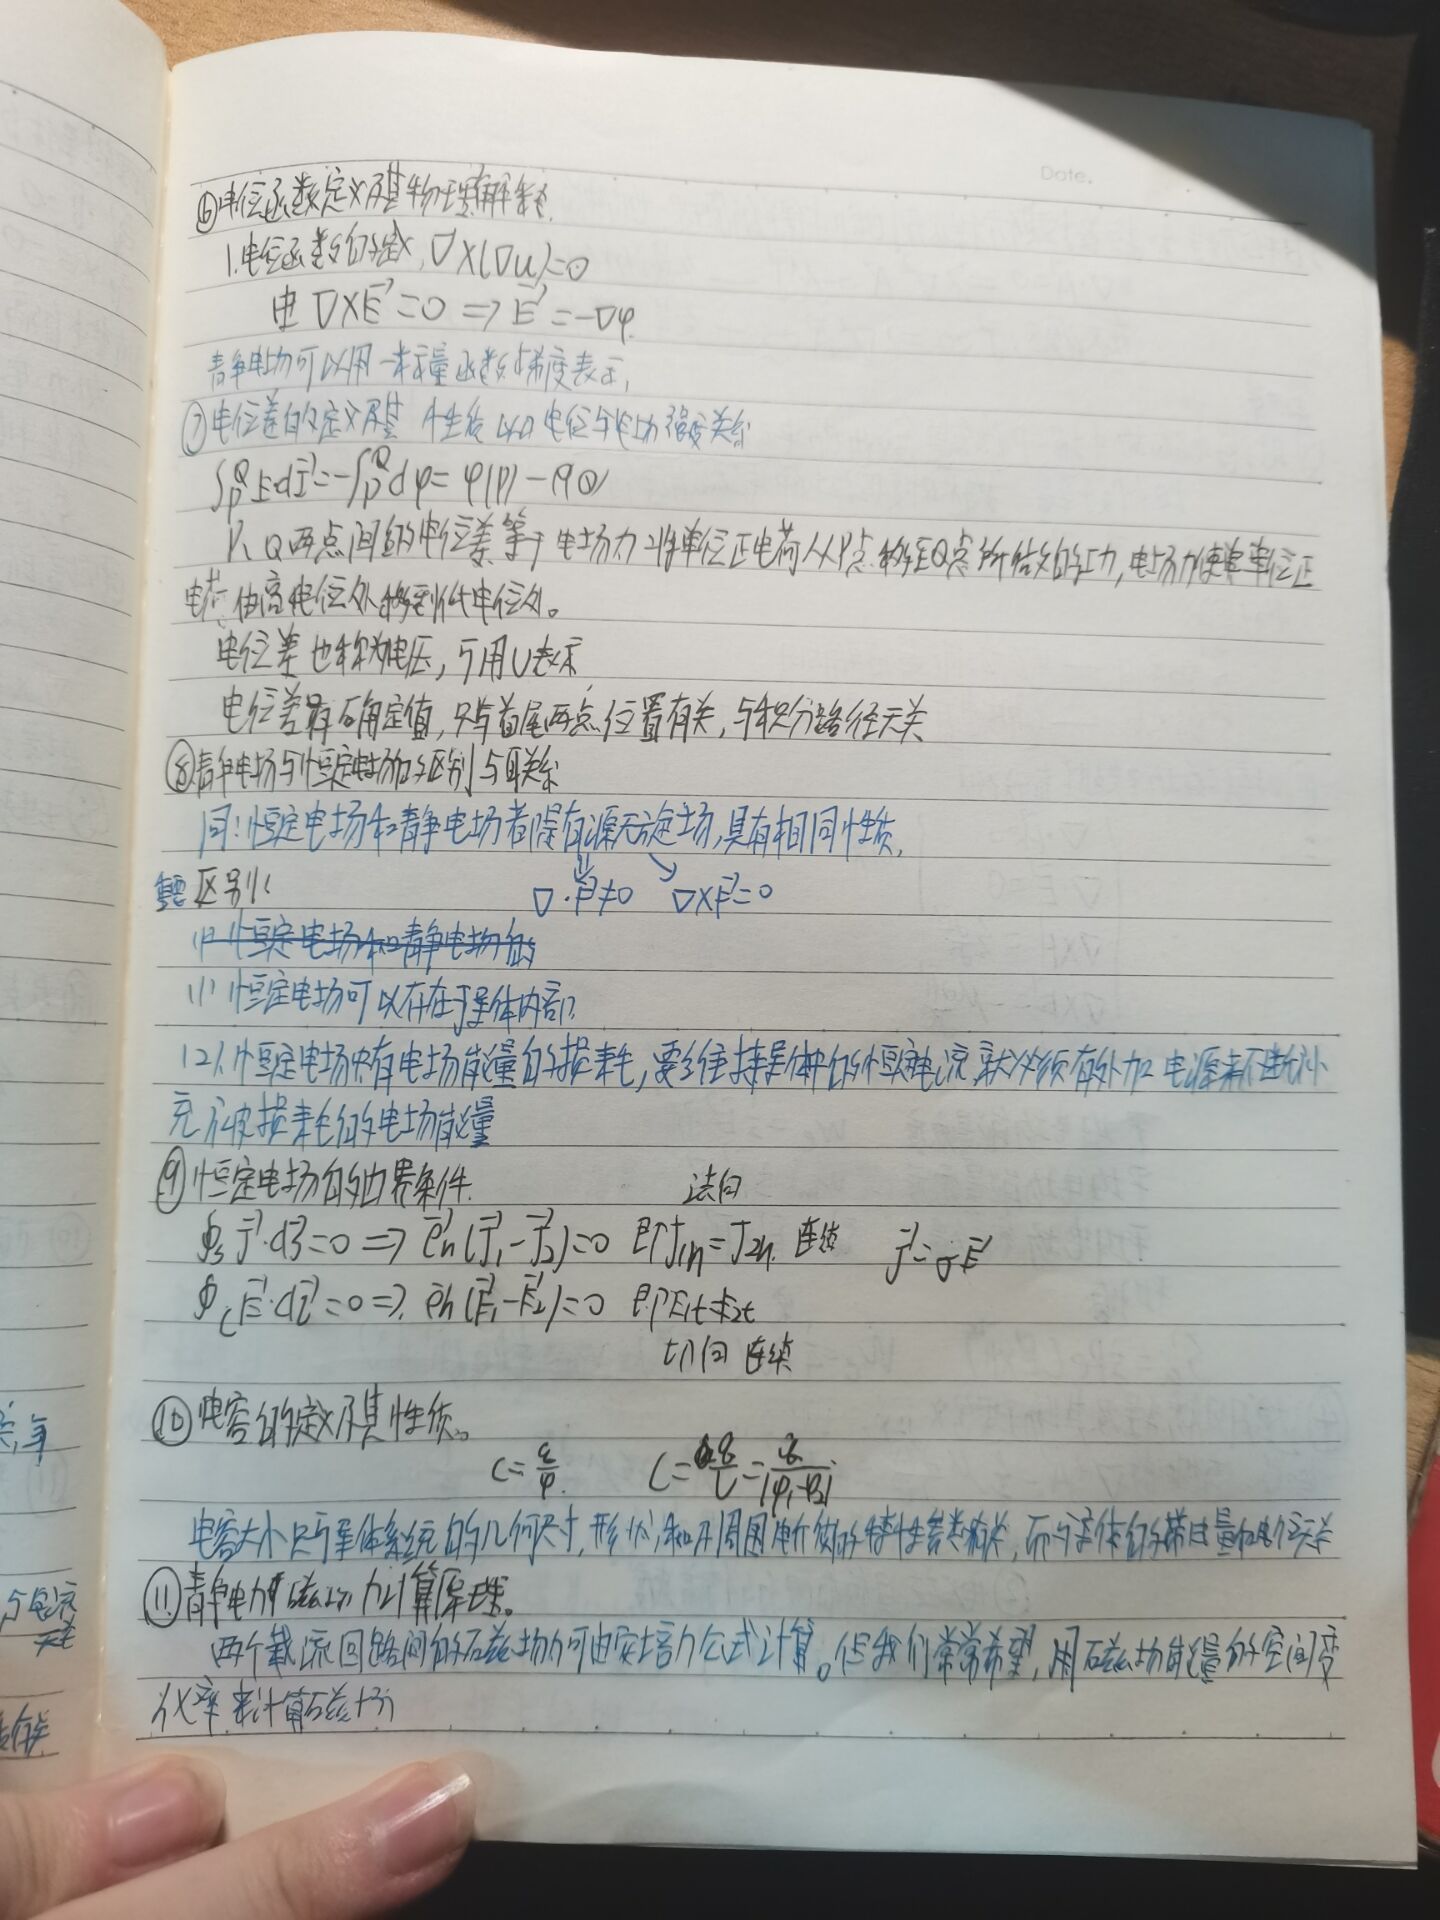 Date.
⑥电位函数定义及其物理解释.
1.电位函数的定义, ∇×(∇u)=0
由 ∇×E⃗=0 ⇒ E⃗=-∇φ.
静电场可以用一标量函数梯度表示,
⑦电位差的定义及其 性质 以及 电位与电场强度关系
∫_P^Q E·dl⃗=-∫_P^Q dφ=φ(P)-φ(Q)
P、Q两点间的电位差等于电场力将单位正电荷从P点移至Q点所做的功,电场力使单位正
电荷由高电位处移到低电位处。
电位差也称为电压,可用U表示
电位差有确定值,只与首尾两点位置有关,与积分路径无关
⑧静电场与恒定电场的区别与联系
同:恒定电场和静电场都是有源无旋场,具有相同性质.
重要 区别:
∇·E⃗≠0 ∇×E⃗=0
恒定电场和静电场的
(1) 恒定电场可以存在于导体内部.
(2).恒定电场中有电场能量的损耗,要维持导体中的恒定电流,就必须有外加电源来不断补
充被损耗的电场能量
⑨恒定电场的边界条件. 法向
∮_S J⃗·dS⃗=0 ⇒ e⃗n(J⃗1-J⃗2)=0 即J1n=J2n. 连续 J⃗=σE⃗
∮_C E⃗·dl⃗=0 ⇒ e⃗n(E⃗1-E⃗2)=0 即E1t=E2t
切向 连续
⑩电容的定义及其性质。
C=q/φ. C=q/U=q/|φ1-φ2|
电容大小只与导体系统的几何尺寸,形状,和及周围电介质的特性参数有关,而与导体的带电量和电位无关
⑪静电力 磁场力计算原理。
两个载流回路间的磁场力可由安培力公式计算。但我们常常希望,用磁场能量的空间变
化率来计算磁场力